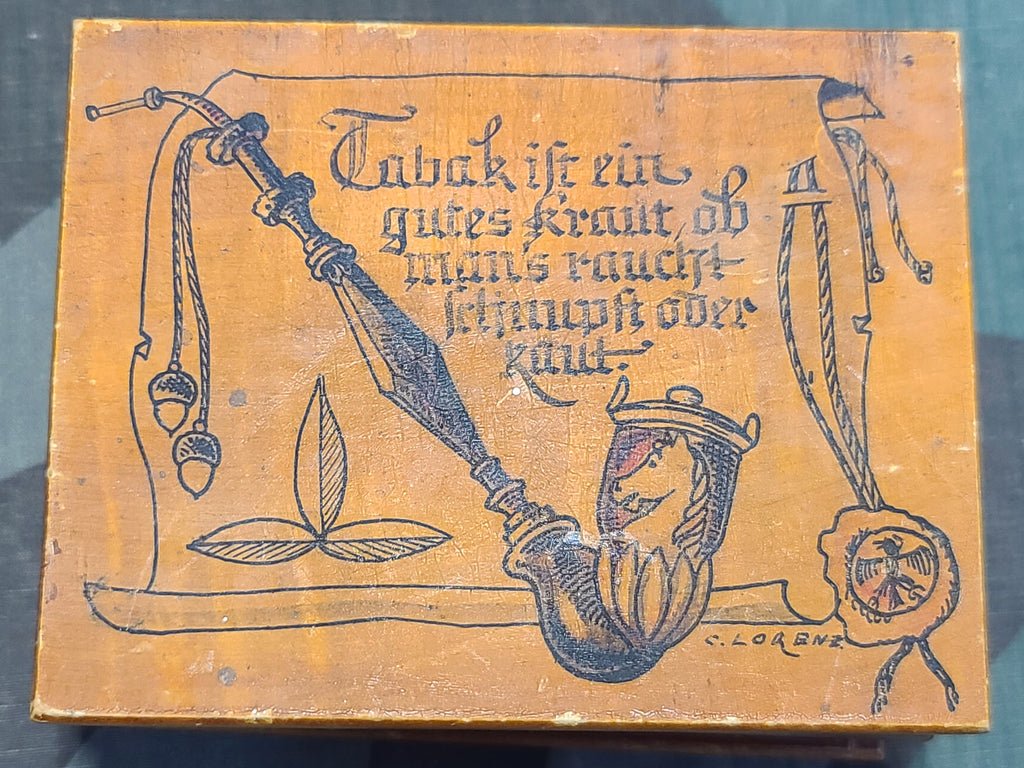 Tabak ist ein
gutes Kraut, ob
man's raucht
schnupft oder
kaut.
C. LORENZ